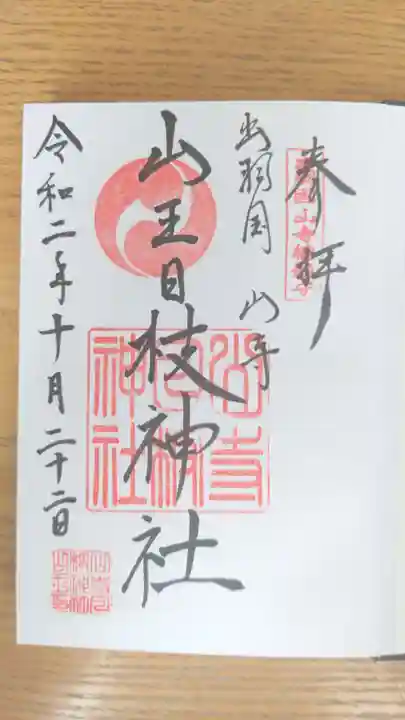 奉拝
出羽国 山寺
山王日枝神社
山寺
日枝
神社
令和二年十月二十二日